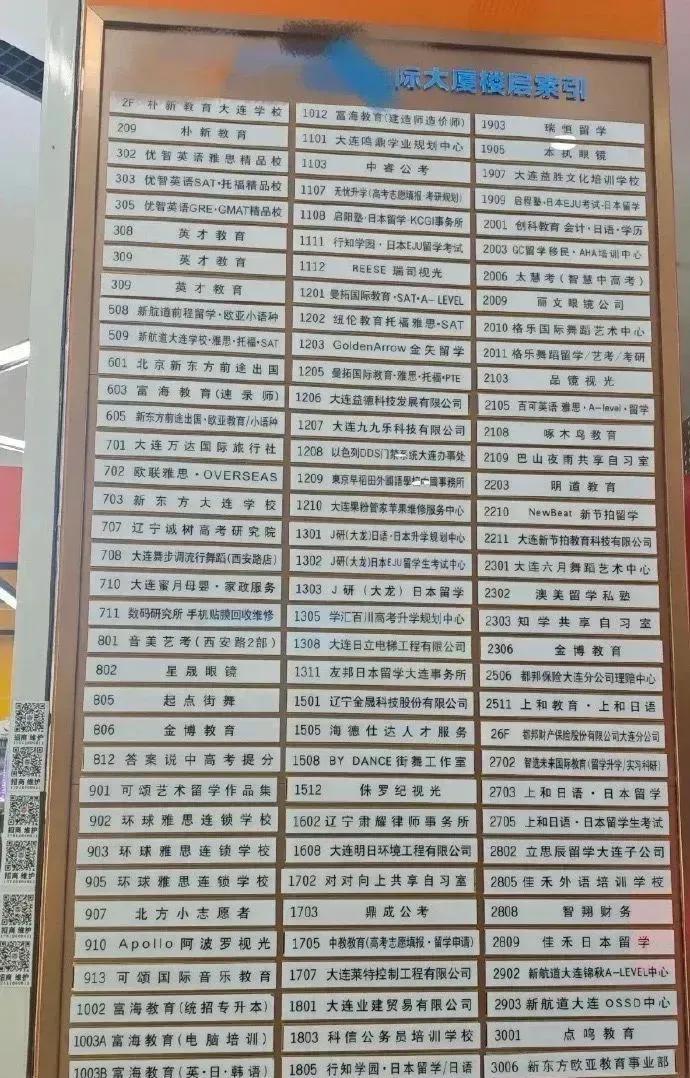 际大厦楼层索引
2F 朴新教育大连学校
209 朴新教育
302 优智英语雅思精品校
303 优智英语SAT·托福精品校
305 优智英语GRE·GMAT精品校
308 英才教育
309 英才教育
309 英才教育
508 新航道前程留学·欧亚小语种
509 新航道大连学校·雅思·托福·SAT
601 北京新东方前途出国
603 富海教育(速录师)
605 新东方前途出国·欧亚教育/小语种
701 大连万达国际旅行社
702 欧联雅思·OVERSEAS
703 新东方大连学校
707 辽宁诚树高考研究院
708 大连舞步调流行舞蹈(西安路店)
710 大连蜜月母婴·家政服务
711 数码研究所 手机贴膜回收维修
801 音美艺考(西安路2部)
802 星晟眼镜
805 起点街舞
806 金博教育
812 答案说中高考提分
901 可颂艺术留学作品集
902 环球雅思连锁学校
903 环球雅思连锁学校
905 环球雅思连锁学校
907 北方小志愿者
910 Apollo 阿波罗视光
913 可颂国际音乐教育
1002 富海教育(统招专升本)
1003A 富海教育(电脑培训)
1003B 富海教育(英·日·韩语)
1012 富海教育(建造师造价师)
1101 大连鸣鼎学业规划中心
1103 中睿公考
1107 无忧升学(高考志愿填报·考研规划)
1108 启阳塾·日本留学·KCGI事务所
1111 行知学园·日本EJU留学考试
1112 REESE 瑞司视光
1201 曼拓国际教育·SAT·A-LEVEL
1202 纽伦教育托福雅思·SAT
1203 GoldenArrow 金矢留学
1205 曼拓国际教育·雅思·托福·PTE
1206 大连益德科技发展有限公司
1207 大连九九乐科技有限公司
1208 以色列DDS门禁系统大连办事处
1209 東京早稻田外國語學校中國事務所
1210 大连果粉管家苹果维修服务中心
1301 J研(大龙)日语·日本升学规划中心
1302 J研(大龙)日本EJU留学生考试中心
1303 J研(大龙)日本留学
1305 学汇百川高考升学规划中心
1308 大连日立电梯工程有限公司
1311 友邦日本留学大连事务所
1501 辽宁金晟科技股份有限公司
1505 海德仕达人才服务
1508 BY DANCE街舞工作室
1512 侏罗纪视光
1602 辽宁肃耀律师事务所
1608 大连明日环境工程有限公司
1702 对对向上共享自习室
1703 鼎成公考
1705 中教教育(高考志愿填报·留学申请)
1707 大连莱特控制工程有限公司
1801 大连业建贸易有限公司
1803 科信公务员培训学校
1805 行知学园·日本留学/日语
1903 瑞恒留学
1905 本执眼镜
1907 大连益胜文化培训学校
1909 启程塾·日本EJU考试·日本留学
2001 创科教育 会计·日语·学历
2003 GC留学移民·AHA培训中心
2006 太慧考(智慧中高考)
2009 丽文眼镜公司
2010 格乐国际舞蹈艺术中心
2011 格乐舞蹈留学/艺考/考研
2103 品镜视光
2105 百可英语 雅思·A-level·留学
2108 啄木鸟教育
2109 巴山夜雨共享自习室
2203 明道教育
2210 NewBeat 新节拍留学
2211 大连新节拍教育科技有限公司
2301 大连六月舞蹈艺术中心
2302 澳美留学私塾
2303 知学共享自习室
2306 金博教育
2506 都邦保险大连分公司理赔中心
2511 上和教育·上和日语
26F 都邦财产保险股份有限公司大连分公司
2702 智造未来国际教育(留学升学/实习科研)
2703 上和日语·日本留学
2705 上和日语·日本留学生考试
2802 立思辰留学大连子公司
2805 佳禾外语培训学校
2808 智翔财务
2809 佳禾日本留学
2902 新航道大连锦秋A-LEVEL中心
2903 新航道大连 OSSD中心
3001 点鸣教育
3006 新东方欧亚教育事业部
招商 维护
招商 维护
招商 维护
招商 维护
招商 维护
招商 维护